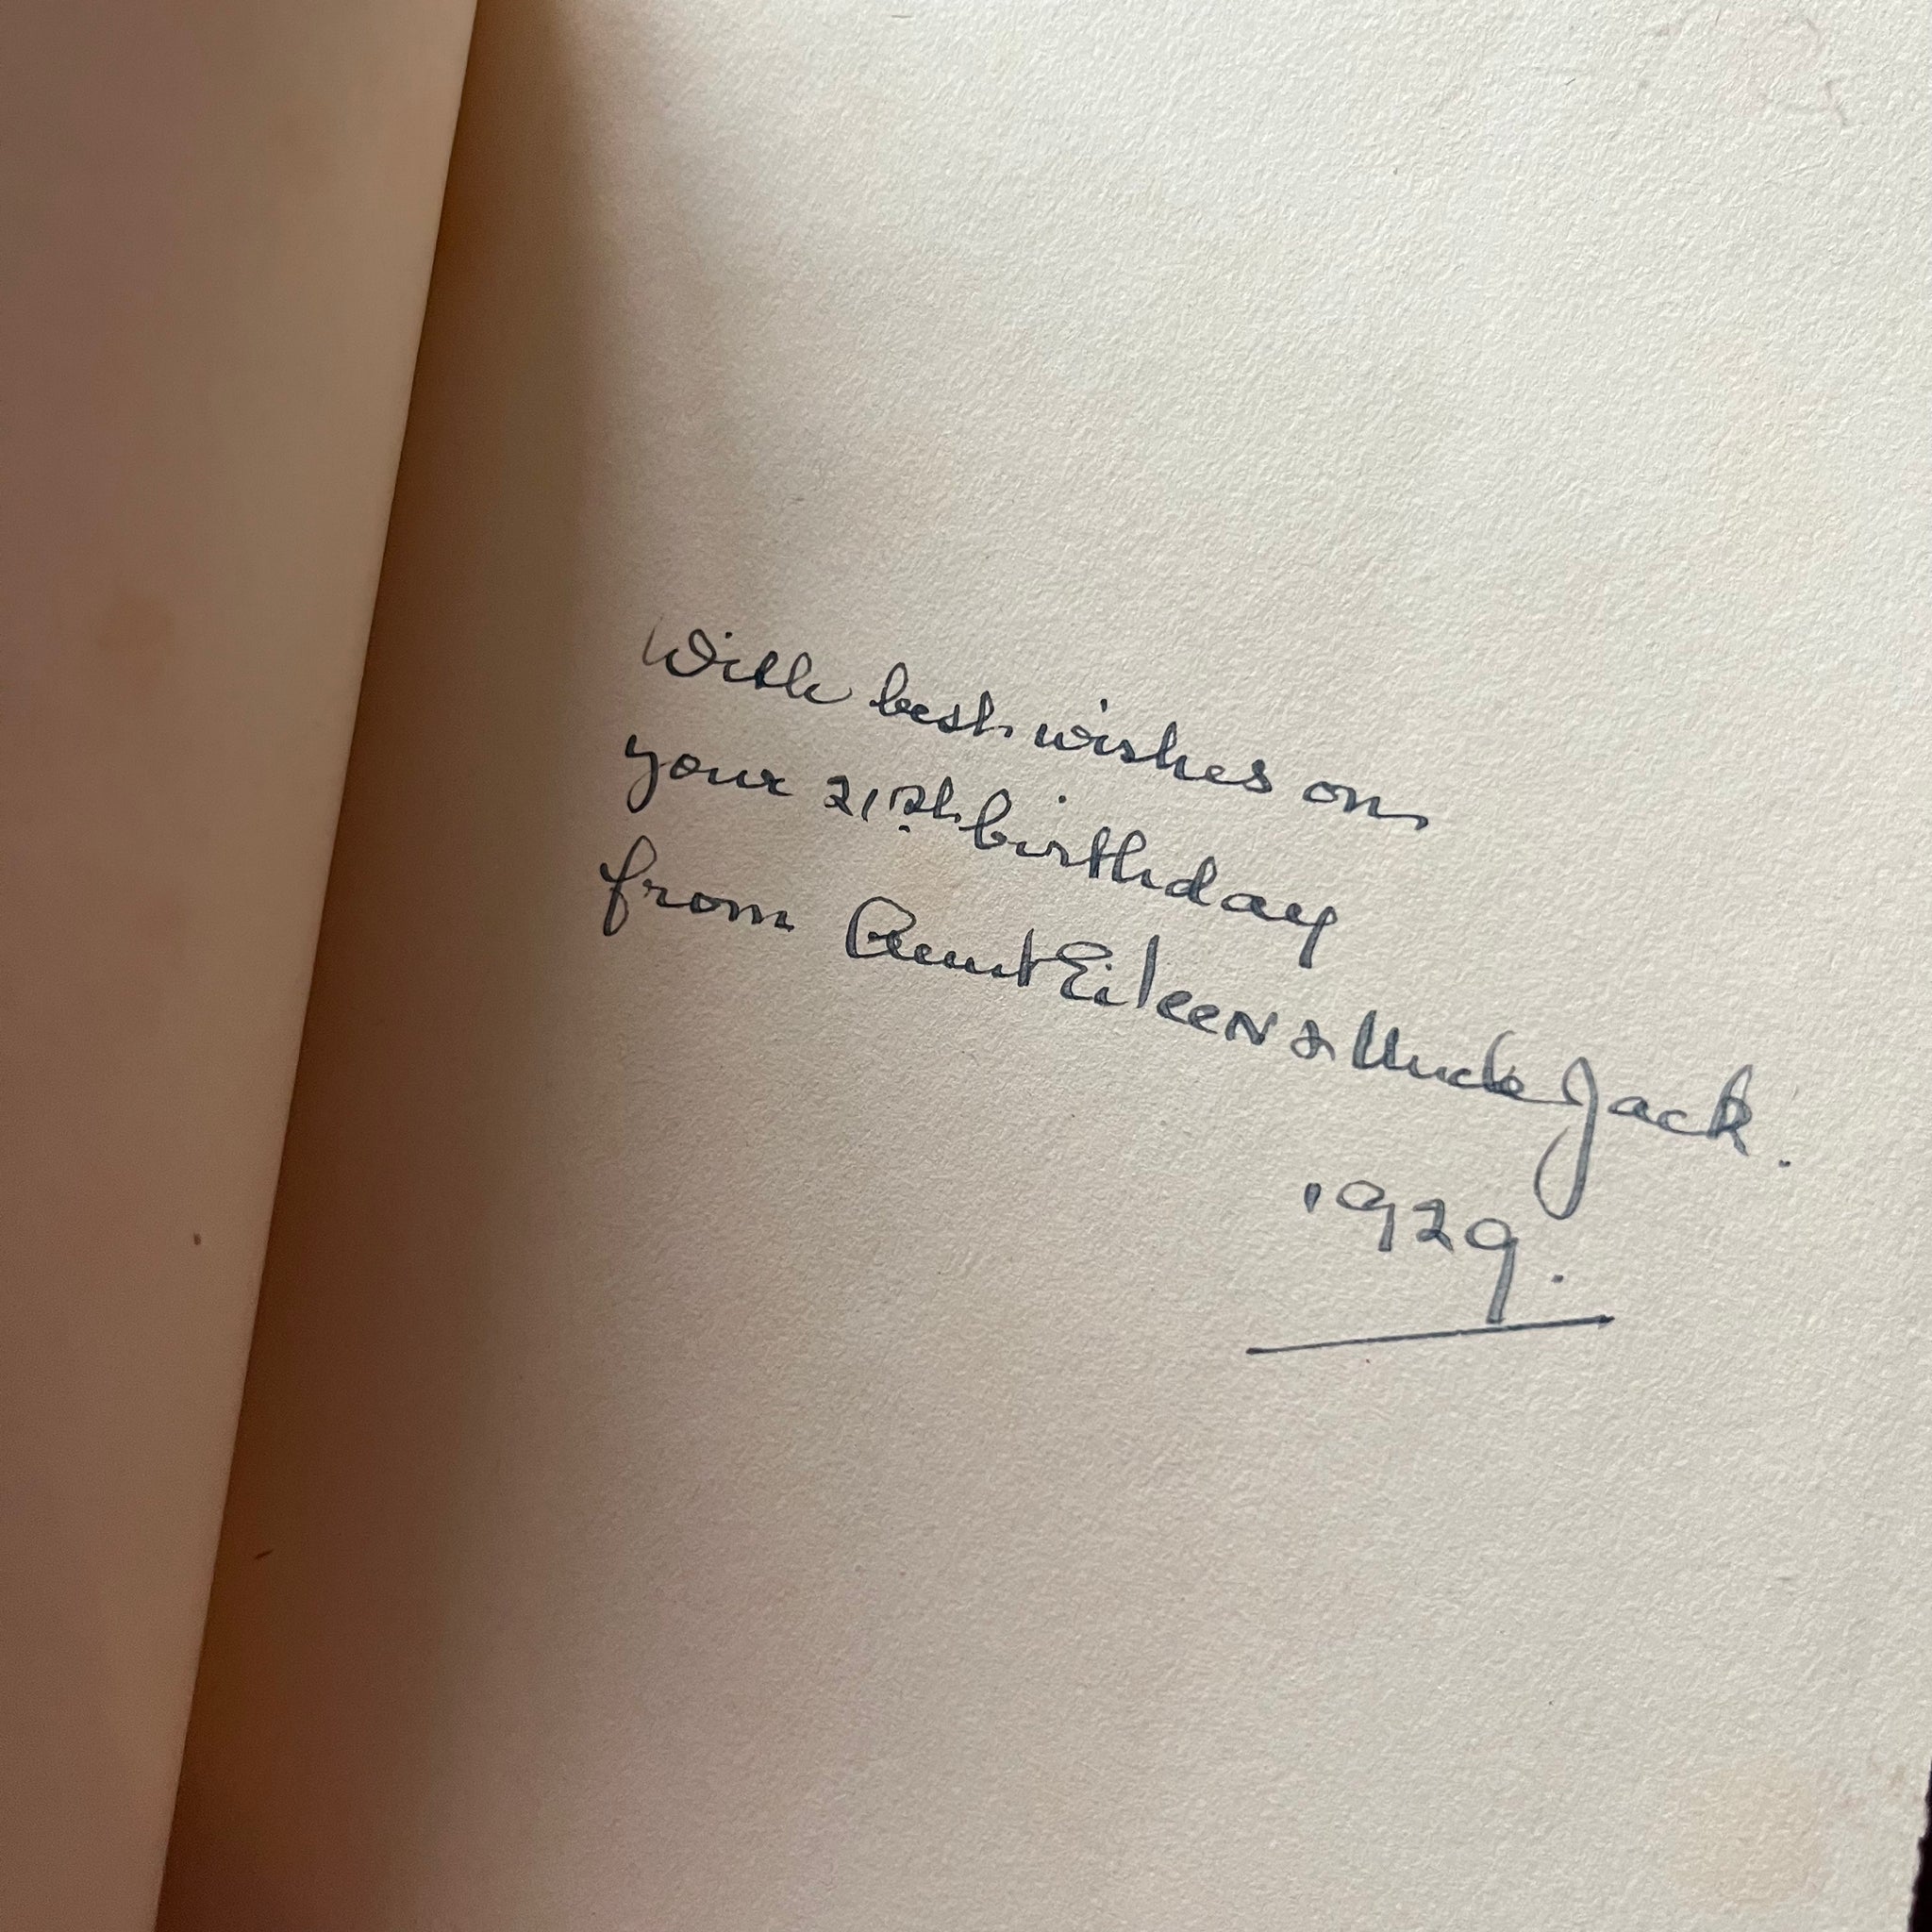 With best wishes on
your 21st birthday
from Aunt Eileen & Uncle Jack.
1929.